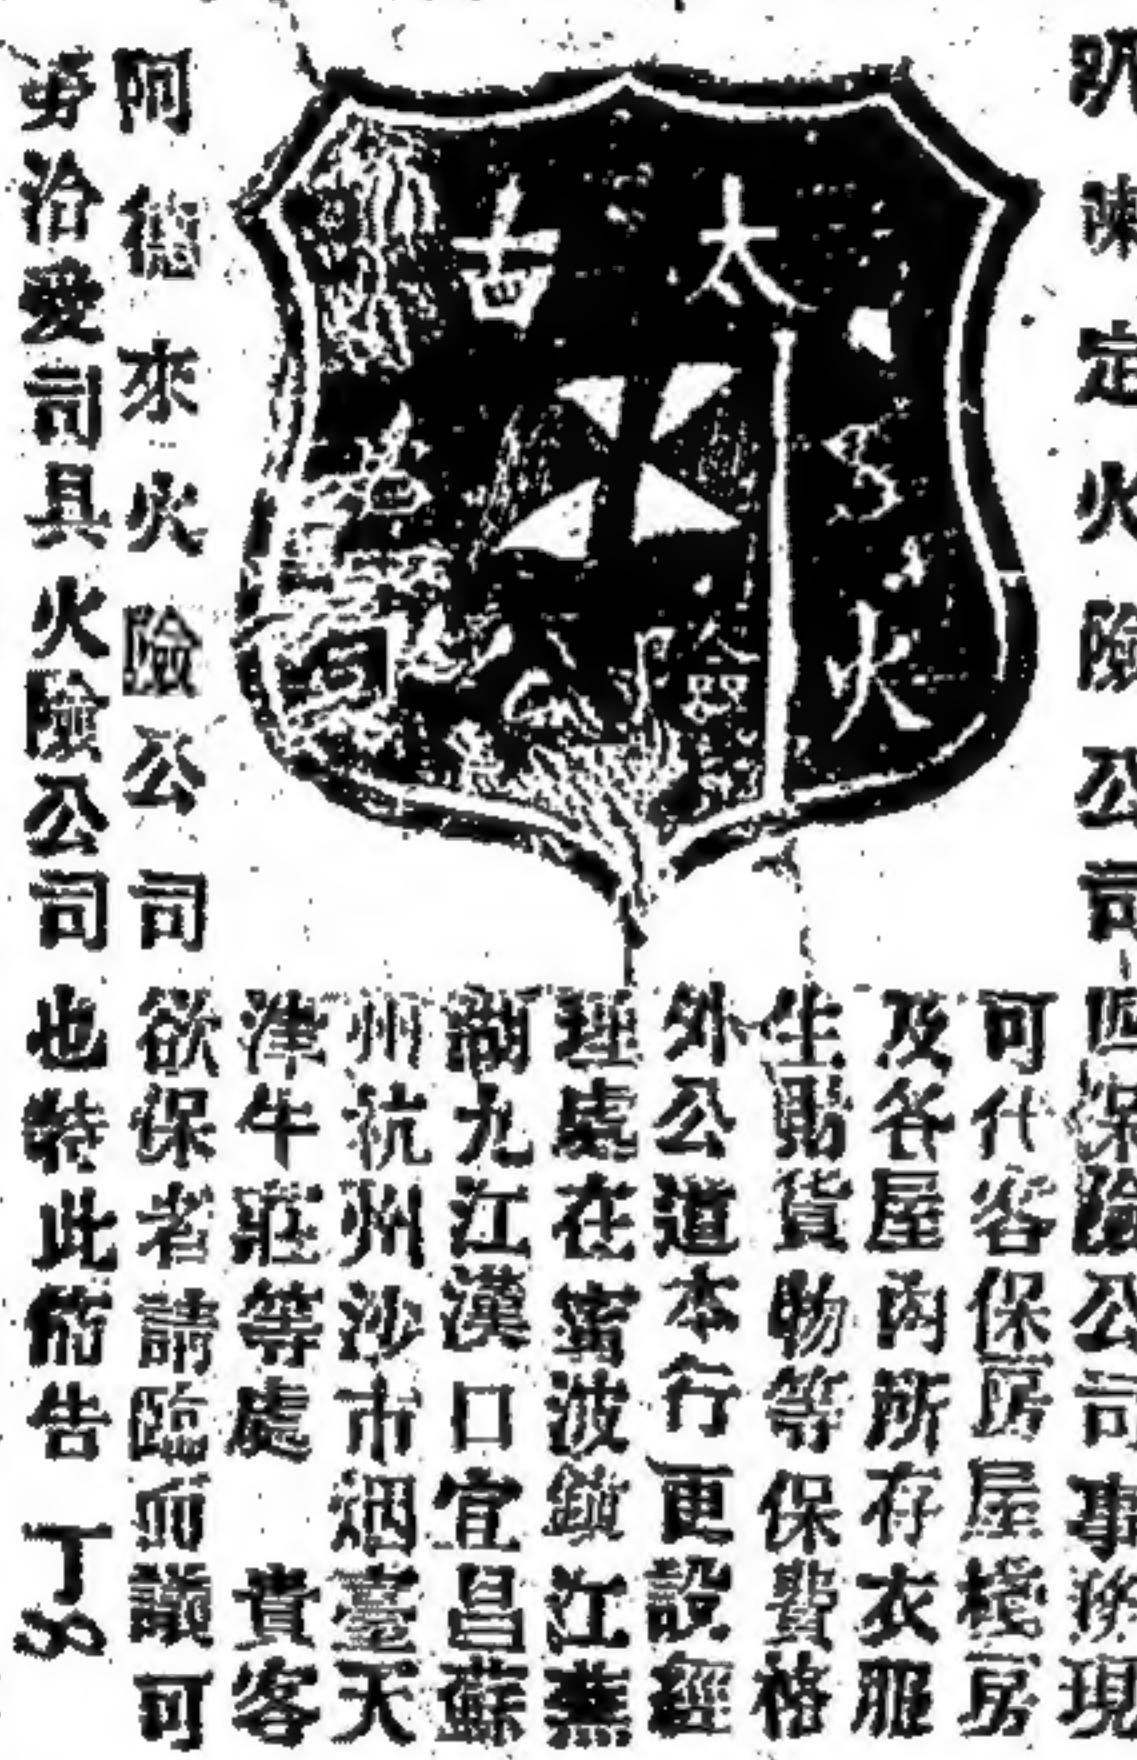 陳定火險公司四保險公司事務現
可代客保房屋棧房
及各屋內所存衣服
生財貨物等保費格
外公道本行更設經
理處在寗波鎮江蕪
湖九江漢口宜昌蘇
州杭州沙市烟臺天
津牛莊等處 貴客
欲保者請臨面議可
也特此佈告 丁8
太古
火險公司
阿德來火險公司
勞洽愛司具火險公司